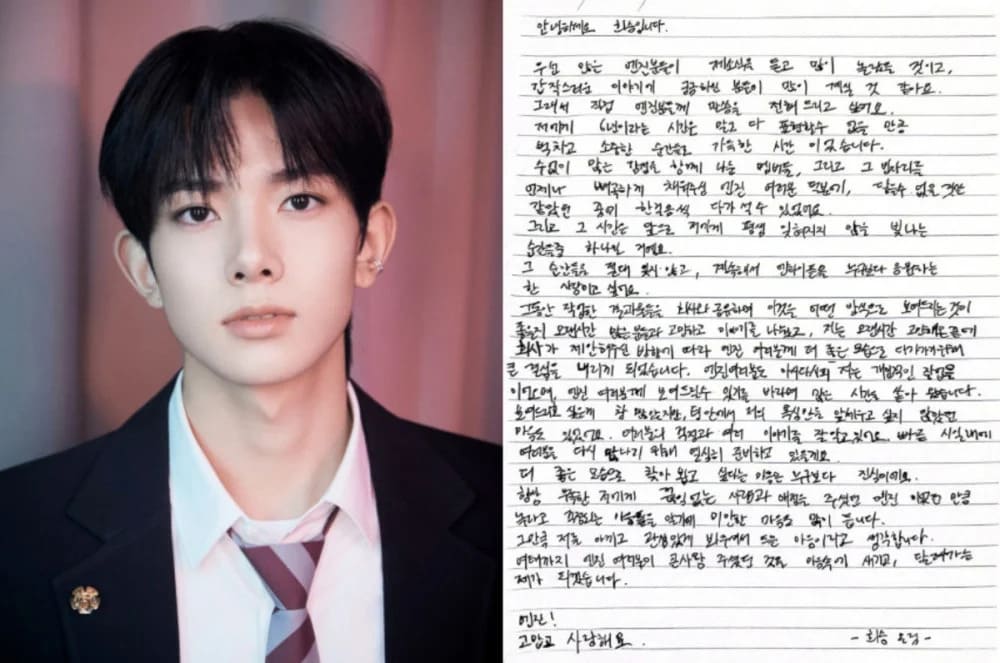 안녕하세요 희승입니다.
우선 많은 엔진분들이 제소식을 듣고 많이 놀랐을 것이고,
갑작스러운 이야기에 궁금하신 분들이 많이 계실 것 같아요.
그래서 직접 엔진분들께 말씀을 전해 드리고 싶어요.
저에게 6년이라는 시간은 말로 다 표현할수 없을 만큼
벅차고 소중한 순간들로 가득한 시간 이었습니다.
수없이 많은 감정을 함께 나눈 멤버들, 그리고 그 빈자리를
언제나 빼곡하게 채워주신 엔진 여러분 덕분에, 닿을수 없을 것만
같았던 꿈에 한걸음씩 다가설 수 있었어요.
그리고 그 시간은 앞으로 저에게 평생 잊혀지지 않을 빛나는
순간들중 하나일 거에요.
그 순간들을 절대 잊지 않고, 계속해서 엔하이픈을 누구보다 응원하는
한 사람이고 싶어요.
그동안 작업한 결과물들을 회사와 공유하며 이것을 어떤 방식으로 보여드리는것이
좋을지 오랜시간 많은분들과 고민하고 이야기를 나눴고, 저는 오랜시간 고민해온끝에
회사가 제안해주신 방향에 따라 엔진 여러분께 더 좋은 모습으로 다가가기위해
큰 결심을 내리게 되었습니다. 엔진여러분도 아시다시피 저는 개인적인 작업물
이었으며, 엔진 여러분께 보여드릴수 있기를 바라며 많은 시간을 쏟아 왔습니다.
보여드리고 싶은게 참 많았지만, 팀 안에서 저의 욕심만을 앞세우고 싶지 않았던
마음도 있었어요. 여러분의 걱정과 여러 이야기를 잘 알고있어요. 빠른 시일내에
여러분을 다시 만나기 위해 열심히 준비하고 있을게요.
더 좋은 모습으로 찾아 뵙고 싶다는 마음은 누구보다 진심이에요.
항상 부족한 저에게 끊임 없는 사랑과 애정을 주셨던 엔진 이었던 만큼
놀라고 걱정되는 마음들을 알기에 미안한 마음도 많이 듭니다.
그만큼 저를 아끼고 관심있게 봐주셔서 드는 마음이라고 생각합니다.
여태까지 엔진 여러분이 큰사랑 주셨던 것을 마음속에 새기고, 달려가는
제가 되겠습니다.
엔진!
고맙고 사랑해요.
- 희승 올림 -